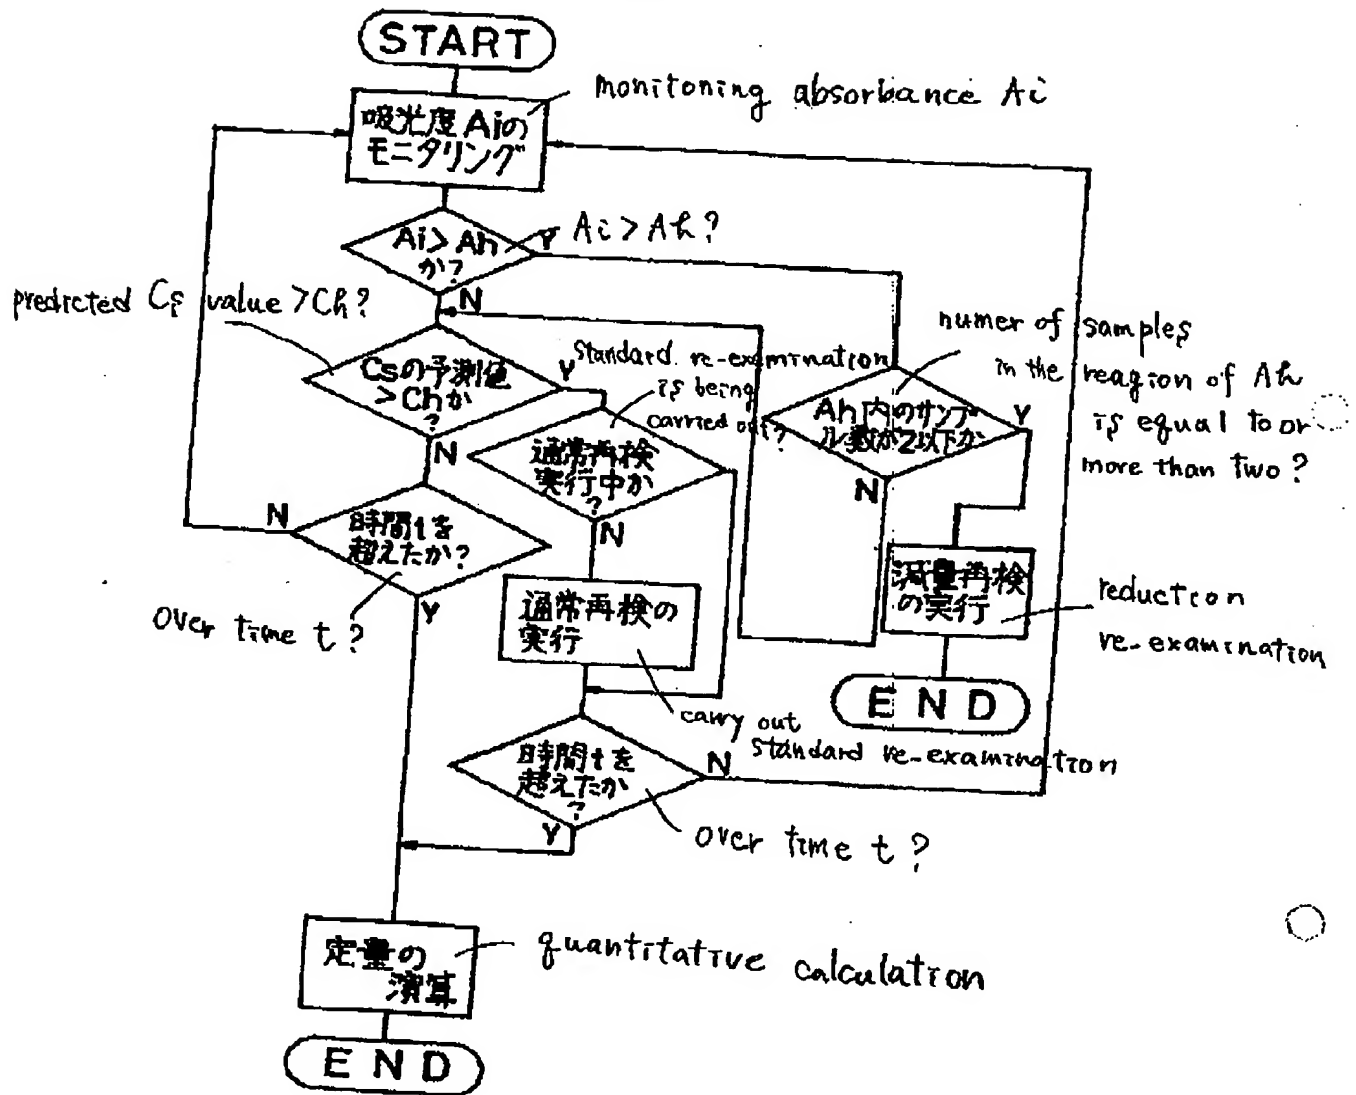 START
monitoning absorbance Ai
吸光度 Aiの
モニタリング
Ai > Ah
か?
Y
Ai > Ah?
N
predicted Cs value > Ch?
Csの予測値
> Chか
?
Y
N
standard re-examination
is being
carried out?
通常再検
実行中か
?
N
numer of samples
in the reagion of Ah
is equal to or
more than two?
Ah内のサンプ
ル数が2以下か
Y
N
N
時間tを
超えたか?
Y
over time t?
通常再検の
実行
carry out
standard re-examination
減量再検
の実行
reduction
re-examination
END
時間tを
超えたか
?
N
Y
over time t?
定量の
演算
quantitative calculation
END